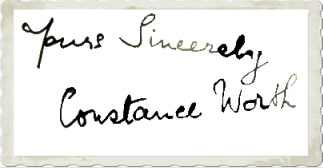 Yours Sincerely
Constance Worth